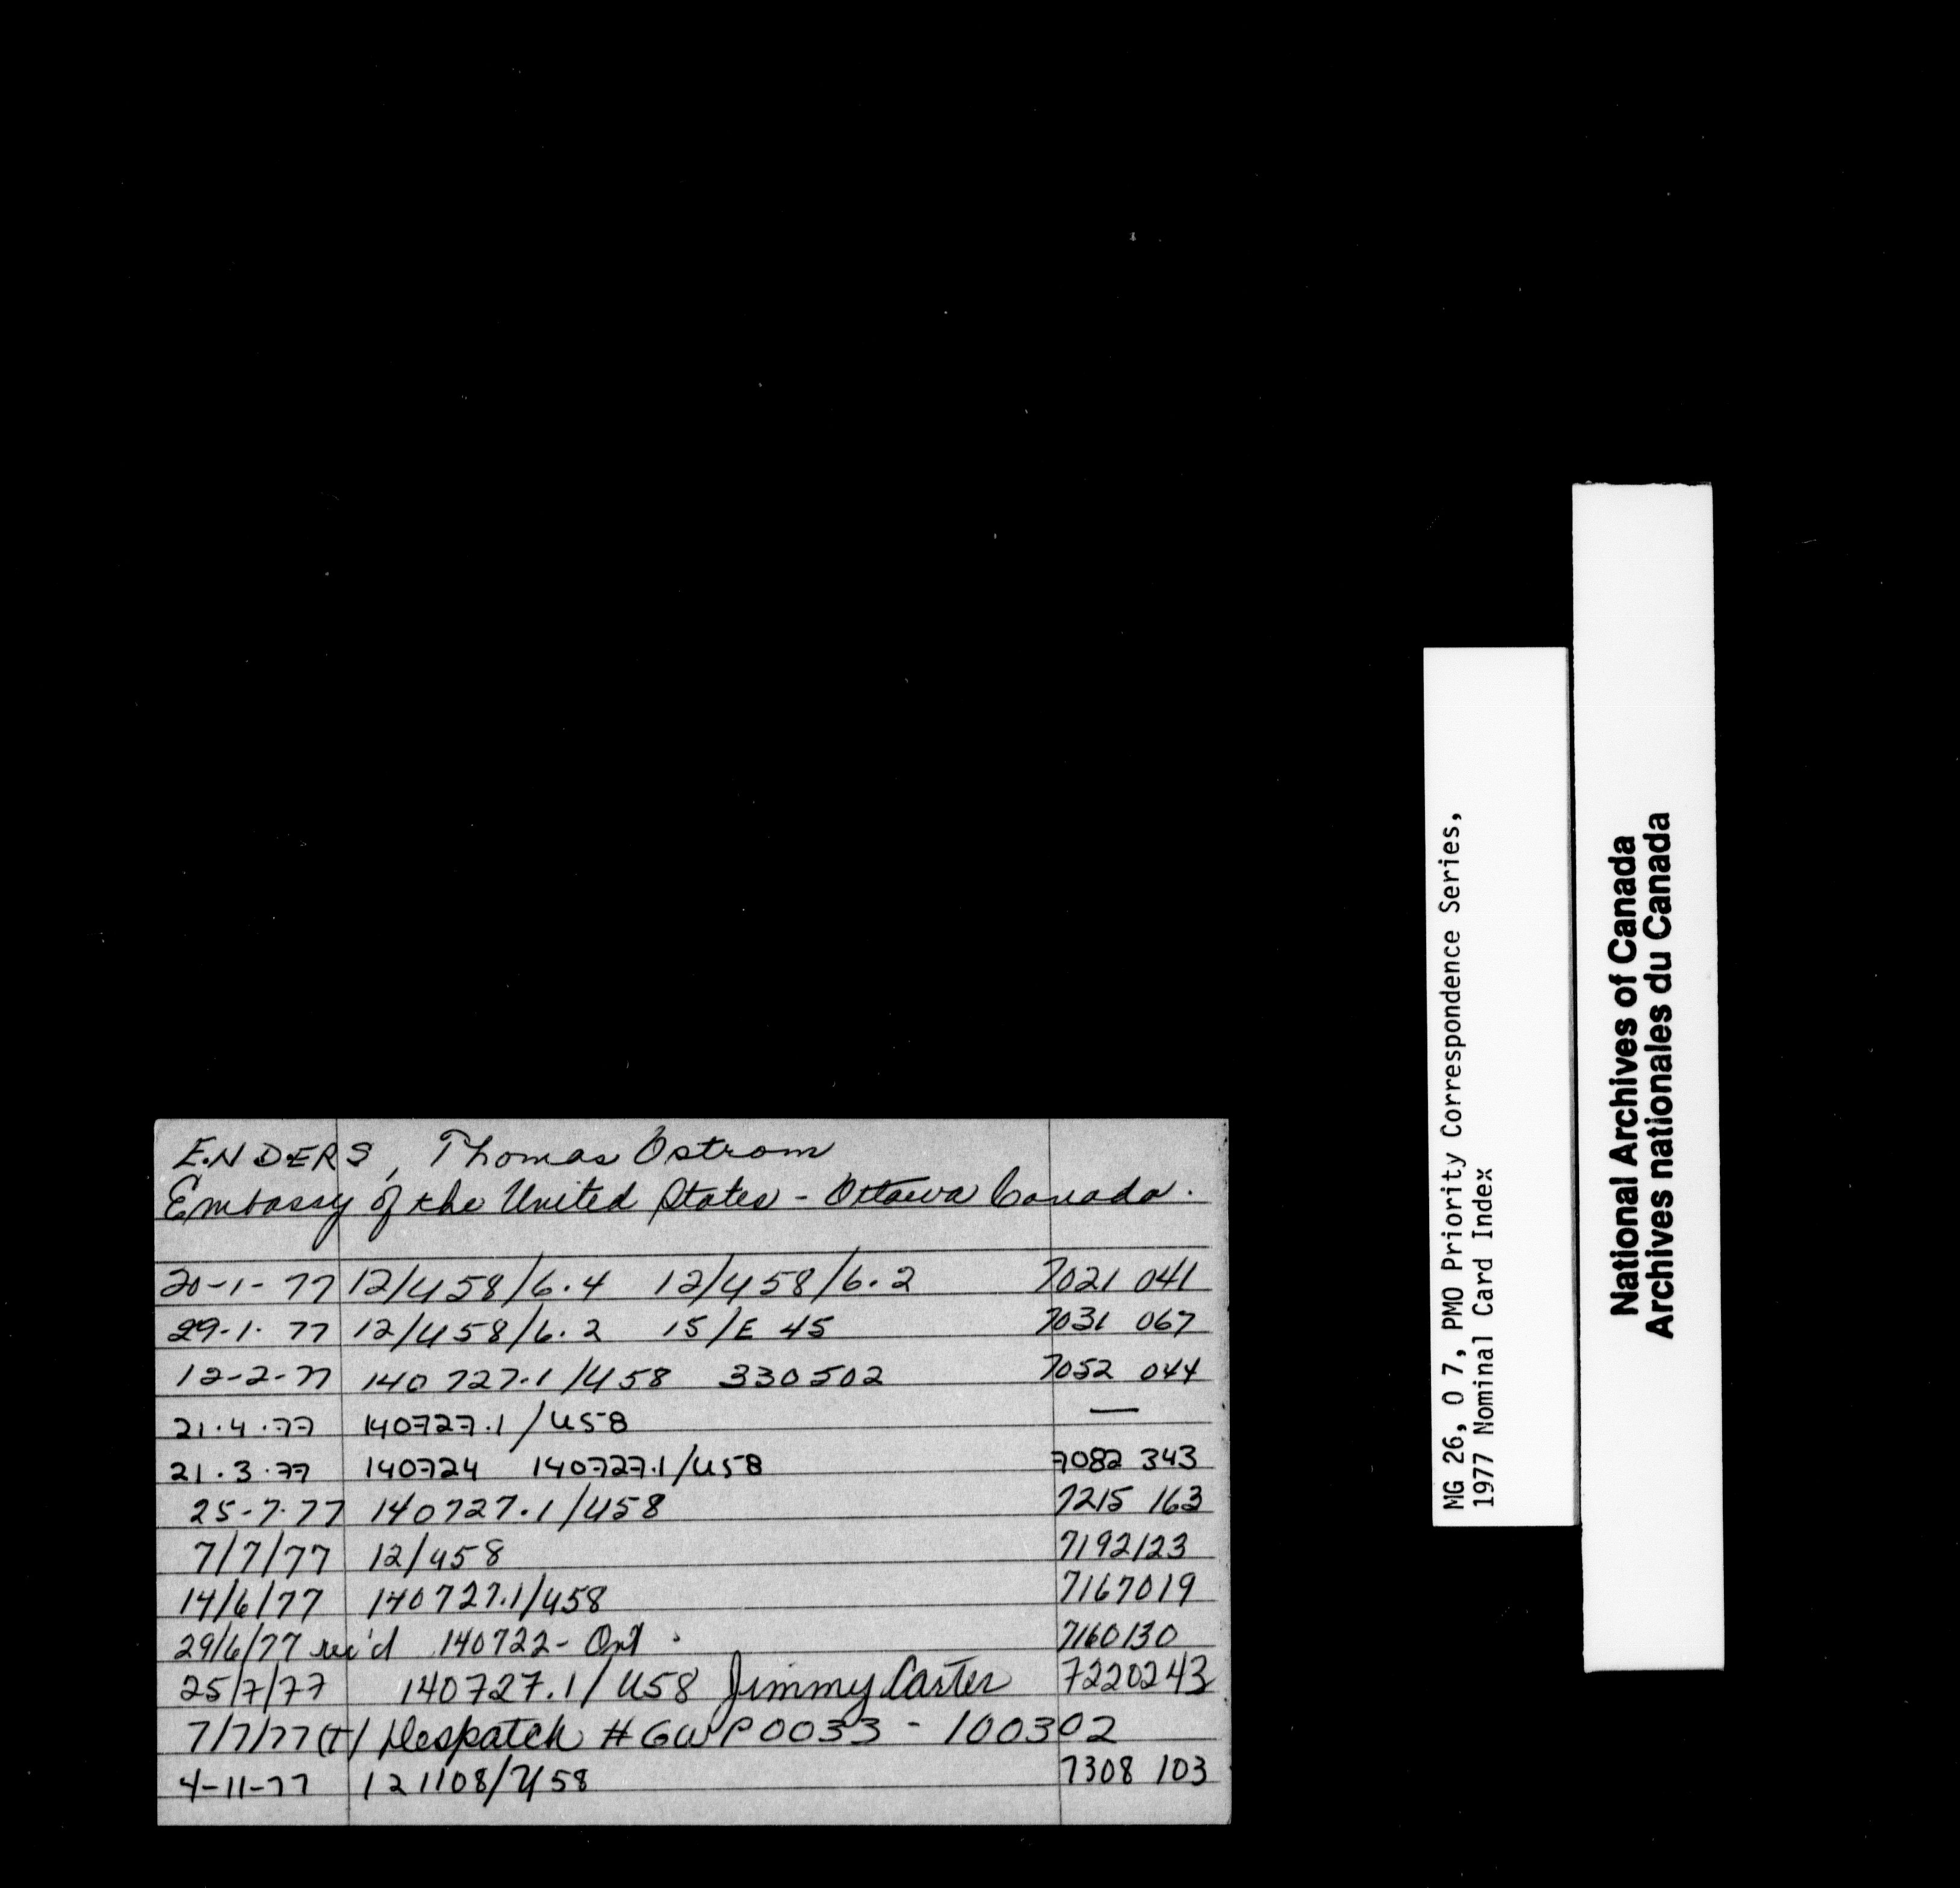 ENDERS, Thomas Ostrom
Embassy of the United States - Ottawa Canada.
20-1-77 12/U58/6.4 12/U58/6.2 7021 041
29-1-77 12/U58/6.2 15/E 45 7031 067
12-2-77 140 727.1/U58 330502 7052 044
21.4.77 140727.1/U58 —
21.3.77 140724 140727.1/U58 7082 343
25-7-77 140727.1/U58 7215 163
7/7/77 12/U58 7192123
14/6/77 140727.1/U58 7167019
29/6/77 rec'd 140722- Ont. 7160130
25/7/77 140727.1/U58 Jimmy Carter 7220243
7/7/77 (T) Despatch # GWP0033 - 100302
4-11-77 121108/U58 7308 103
MG 26, O 7, PMO Priority Correspondence Series,
1977 Nominal Card Index
National Archives of Canada
Archives nationales du Canada